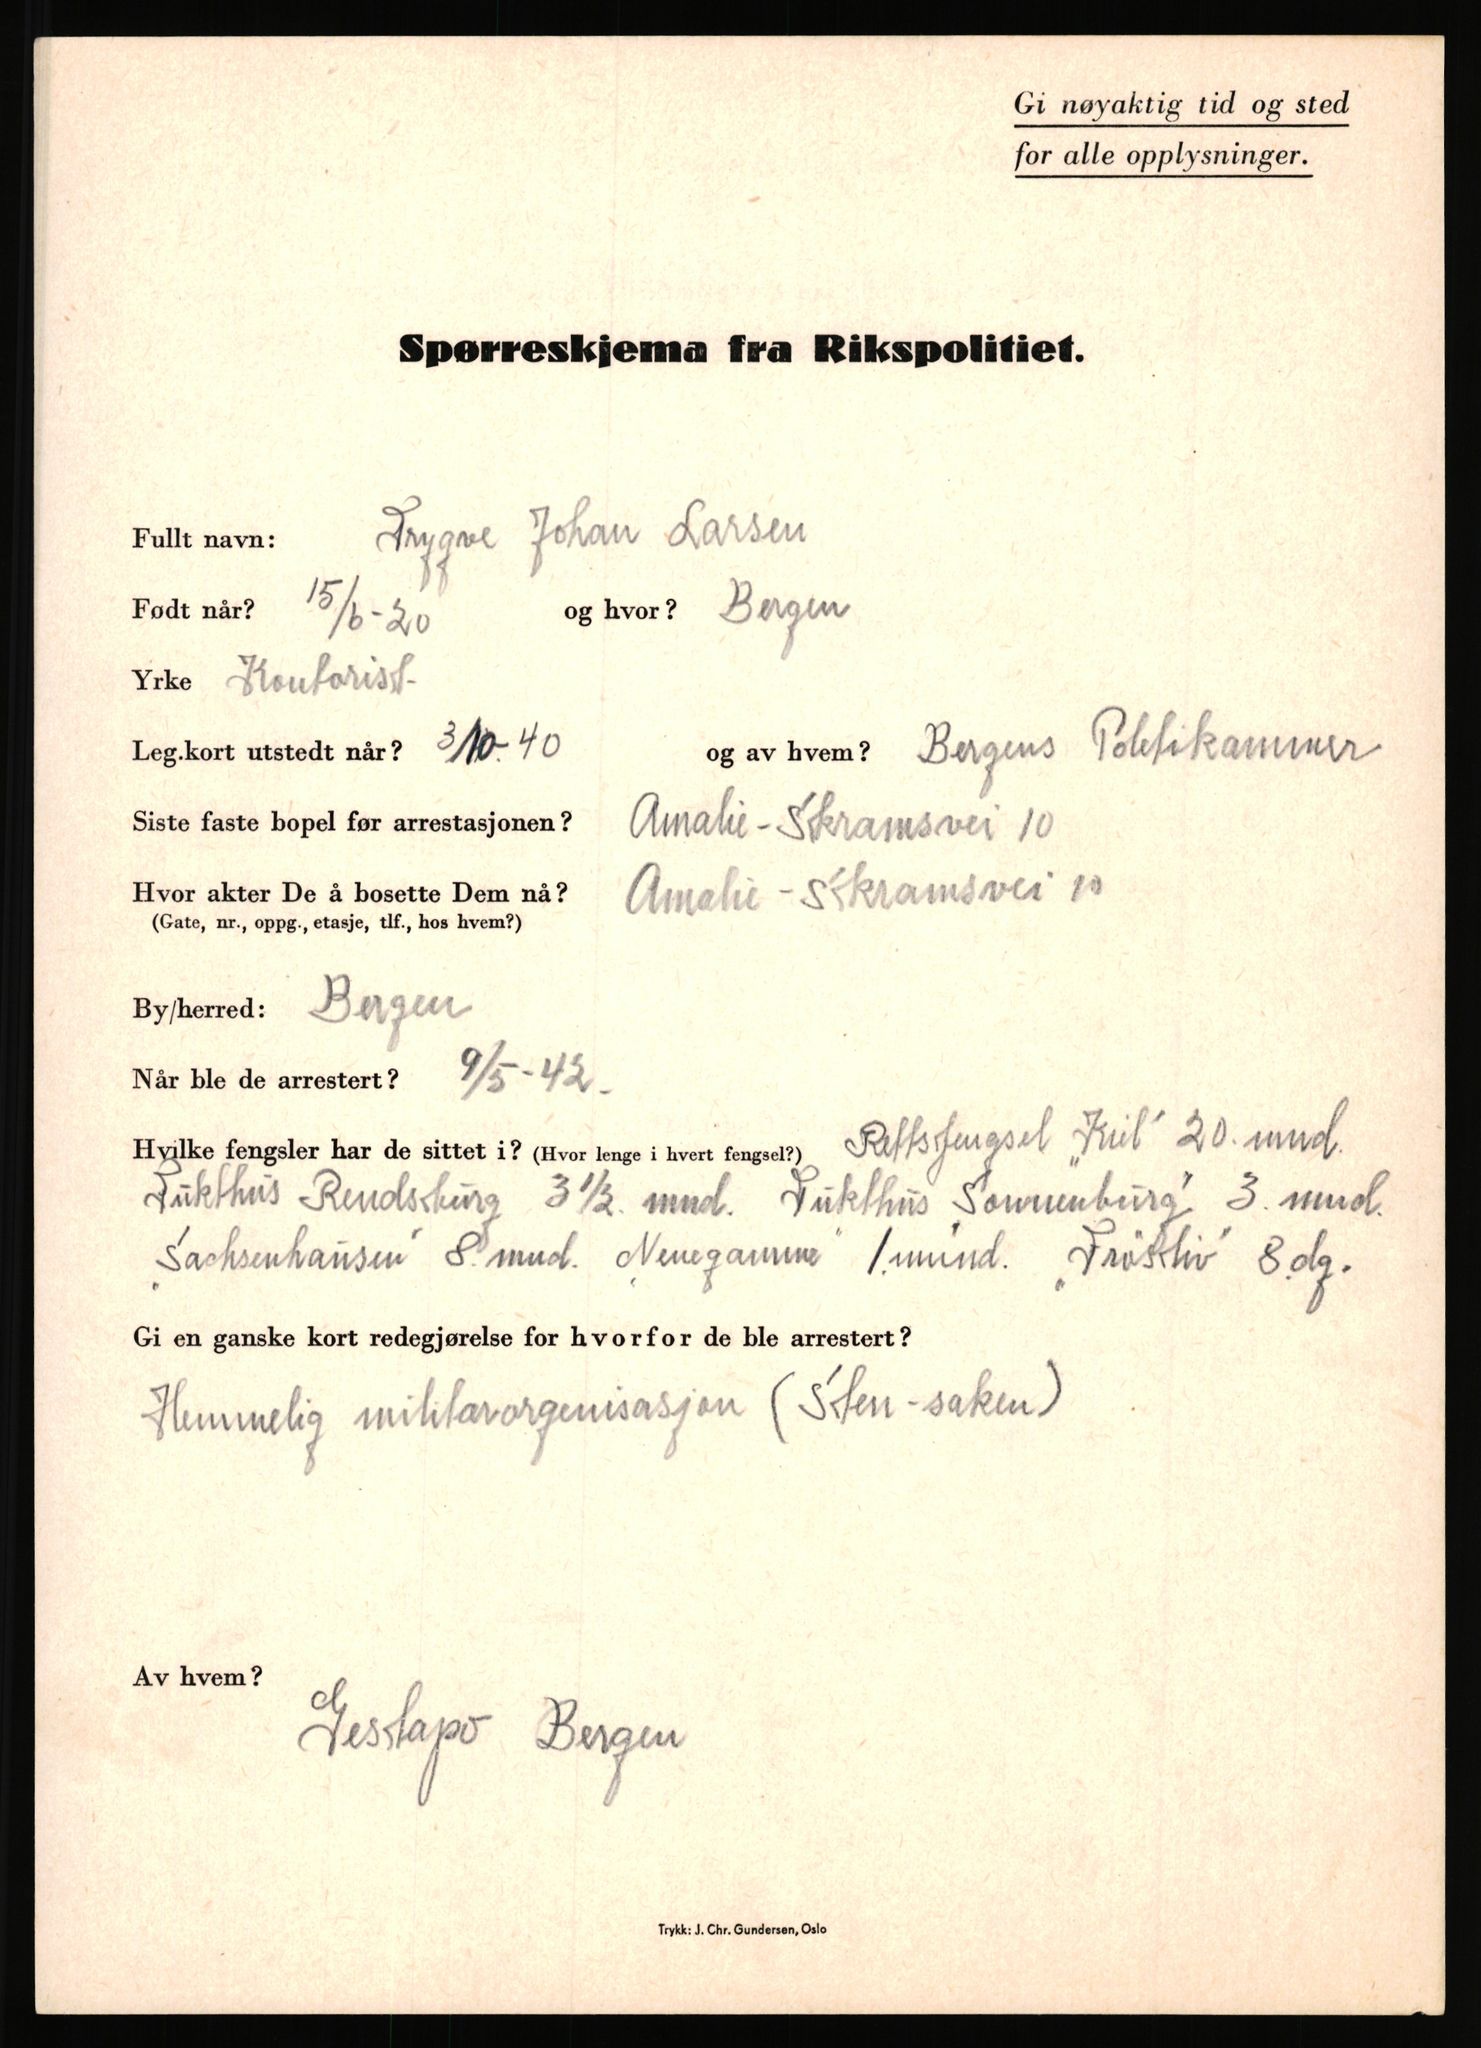 Gi nøyaktig tid og sted
for alle opplysninger.
Spørreskjema fra Rikspolitiet.
Fullt navn: Trygve Johan Larsen
Født når? 15/6-20 og hvor? Bergen
Yrke Kontorist
Leg.kort utstedt når? 3/10-40 og av hvem? Bergens Politikammer
Siste faste bopel før arrestasjonen? Amalie-Skramsvei 10
Hvor akter De å bosette Dem nå? Amalie-Skramsvei 10
(Gate, nr., oppg., etasje, tlf., hos hvem?)
By/herred: Bergen
Når ble de arrestert? 9/5-42.
Hvilke fengsler har de sittet i? (Hvor lenge i hvert fengsel?) Rettsfengsel „Kiel" 20. mnd.
Tukthus Rendsburg 3 1/2. mnd. Tukthus „Sonnenburg" 3. mnd.
„Sachsenhausen" 8. mnd. „Neuegamme" 1. månd. „Fröstliv" 8. dg.
Gi en ganske kort redegjørelse for hvorfor de ble arrestert?
Hemmelig militærorgenisasjon (Sten-saken)
Av hvem?
Gestapo Bergen
Trykk: J. Chr. Gundersen, Oslo